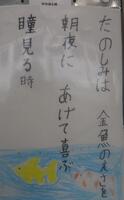 たのしみは 金魚のえさを
朝夜に あげて喜ぶ
瞳見る時